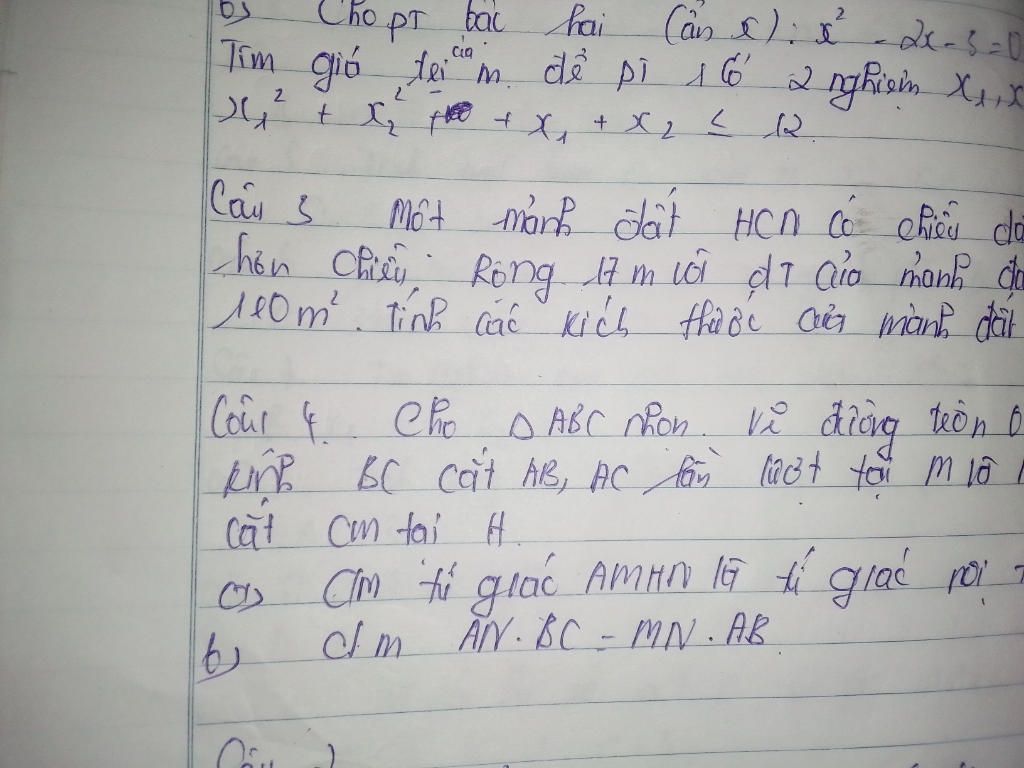 b) Cho PT bậc hai (ẩn x): x² - 2x - 3 = 0
Tìm giá trị của m để pt 1 có 2 nghiệm x₁, x
x₁² + x₂² + x₁ + x₂ ≤ 12.
Câu 3 Một mảnh đất HCN có chiều dà
hơn chiều Rộng 17m với dT của mảnh đấ
110m². Tính các kích thước của mảnh đất
Câu 4. Cho △ABC nhọn. Vẽ đường tròn O
kính BC cắt AB, AC lần lượt tại M và
cắt CM tại H.
a) CM tứ giác AMHN là tứ giác nội
b) C/m AN.BC = MN.AB